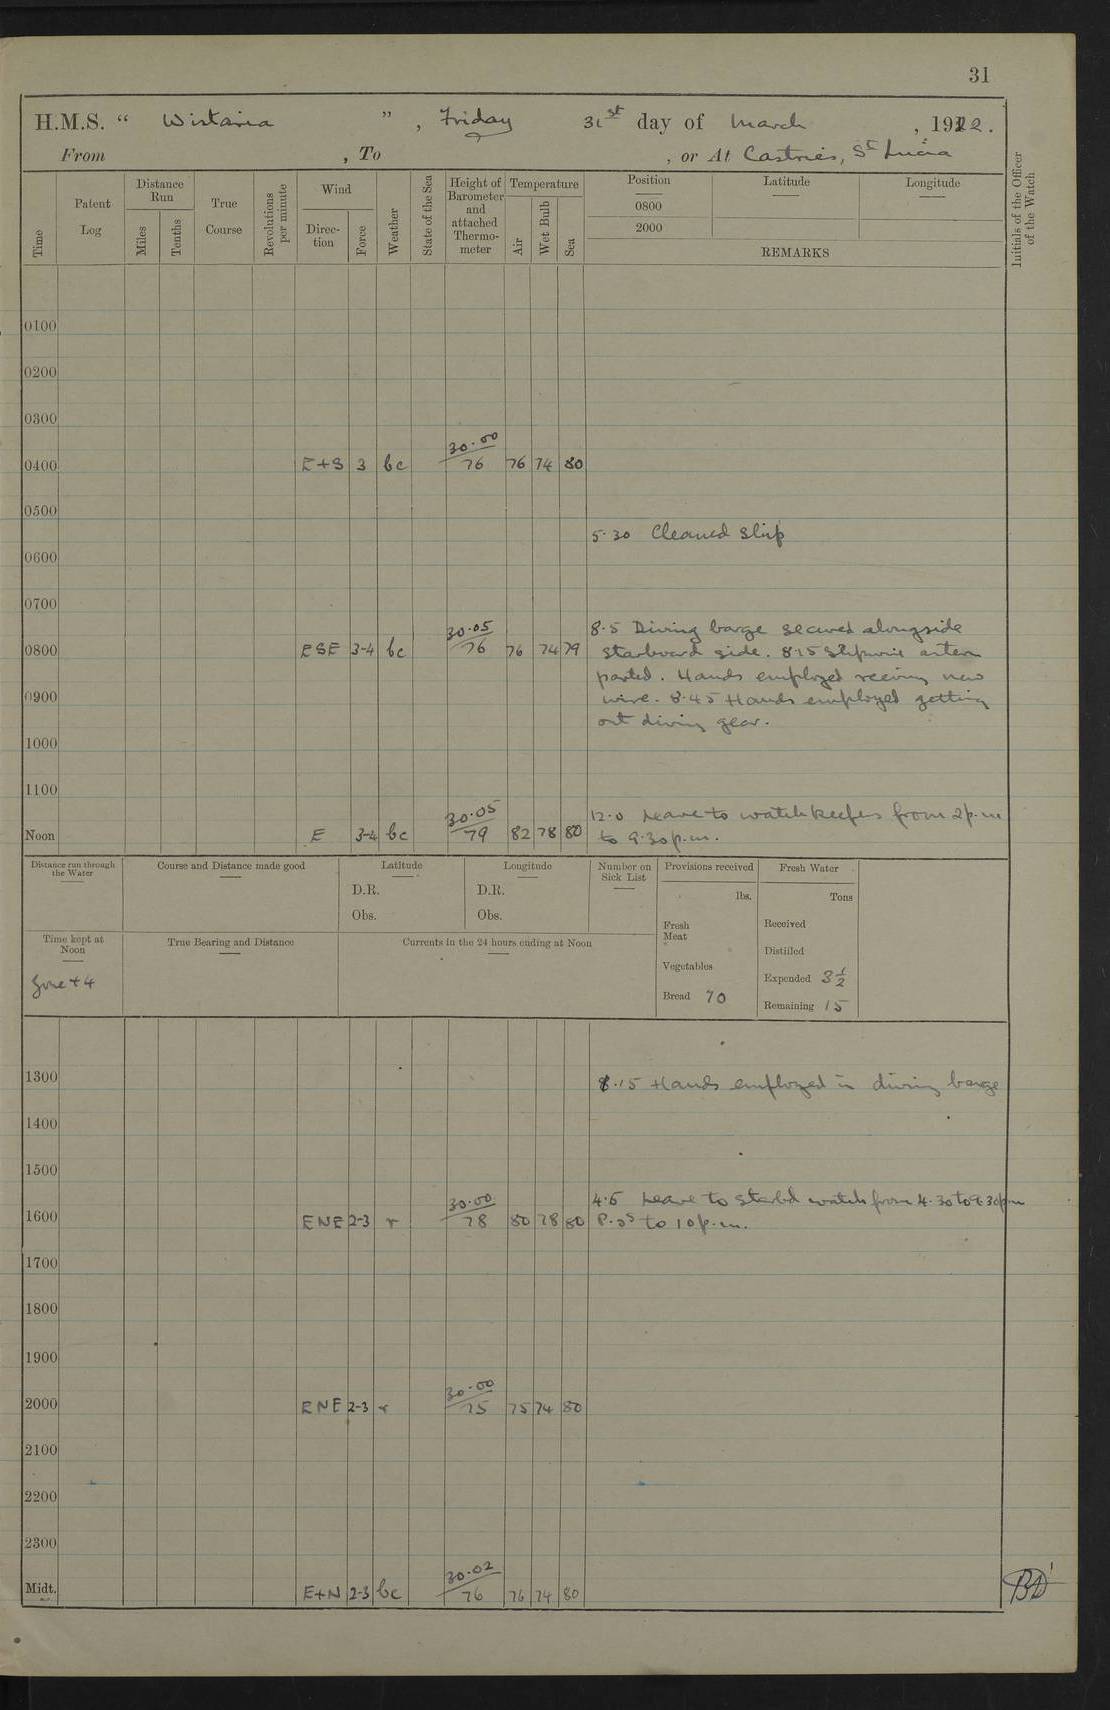 31
H.M.S. " Wistaria " , Friday 31st day of March , 1922.
From , To , or At Castries, St Lucia
Time
Patent Log
Distance Run
Miles
Tenths
True Course
Revolutions per minute
Wind
Direc-tion
Force
Weather
State of the Sea
Height of Barometer and attached Thermo-meter
Temperature
Air
Wet Bulb
Sea
Position
0800
2000
Latitude
Longitude
REMARKS
Initials of the Officer of the Watch
0100
0200
0300
30.00
0400 E+S 3 bc 76 76 74 80
0500
5.30 Cleaned Ship
0600
0700
30.05 8.5 Diving barge secured alongside
0800 ESE 3-4 bc 76 76 74 79 starboard side. 8.15 Slipwire astern
parted. Hands employed reeving new
0900 wire. 8.45 Hands employed getting
out diving gear.
1000
1100
30.05 12.0 Leave to watchkeepers from 2 p.m
Noon E 3-4 bc 79 82 78 80 to 9.30 p.m.
Distance run through the Water
Course and Distance made good
Latitude
D.R.
Obs.
Longitude
D.R.
Obs.
Number on Sick List
Provisions received
lbs.
Fresh Meat
Vegetables
Bread 70
Fresh Water
Tons
Received
Distilled
Expended 3 1/2
Remaining 15
Time kept at Noon
Zone + 4
True Bearing and Distance
Currents in the 24 hours ending at Noon
1300 .15 Hands employed in diving barge
1400
1500
30.00 4.5 Leave to starbd watch from 4.30 to 9.30pm
1600 ENE 2-3 r 78 80 78 80 P.Os to 10 p.m.
1700
1800
1900
30.00
2000 ENE 2-3 r 75 75 74 80
2100
2200
2300
30.02
Midt. E+N 2-3 bc 76 76 74 80